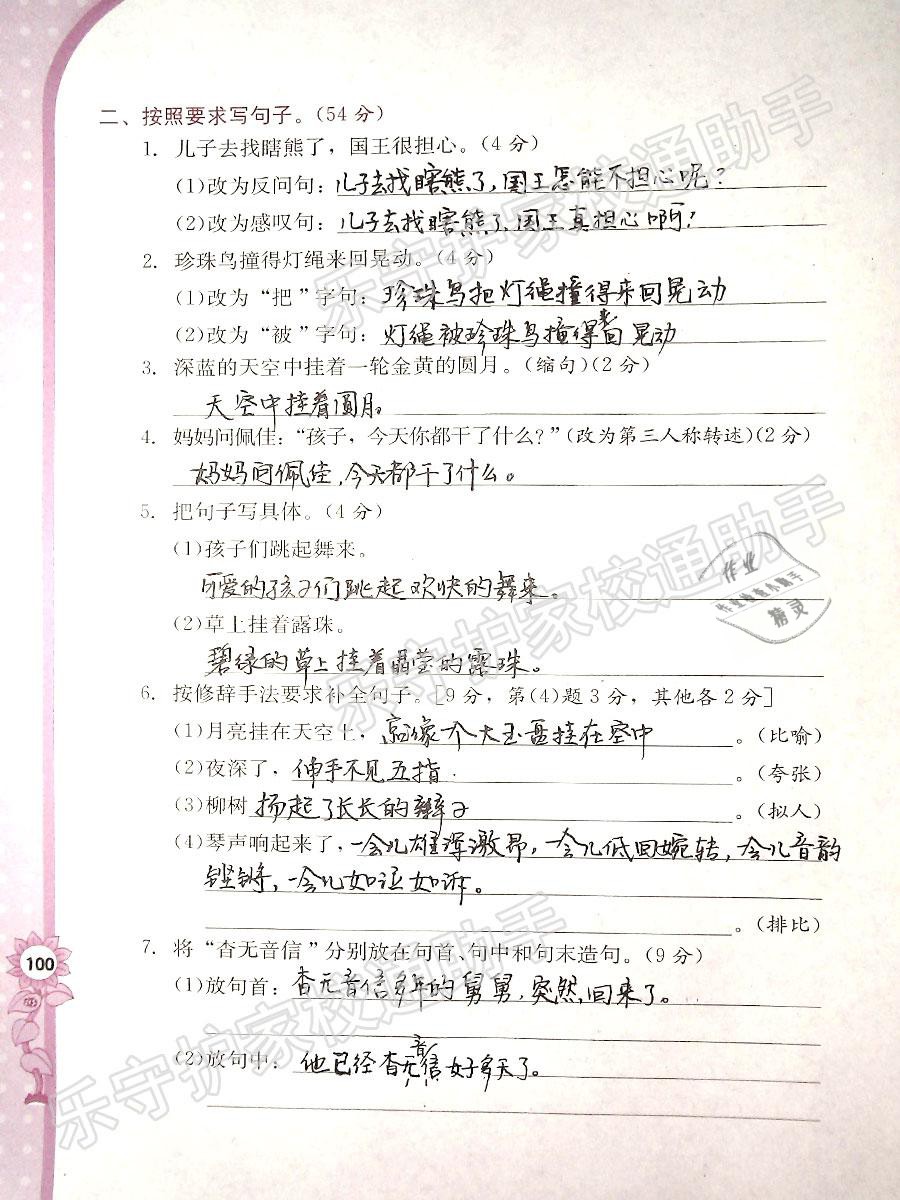 二、按照要求写句子。(54分)
1. 儿子去找瞎熊了，国王很担心。(4分)
(1)改为反问句：儿子去找瞎熊了，国王怎能不担心呢？
(2)改为感叹句：儿子去找瞎熊了，国王真担心啊！
2. 珍珠鸟撞得灯绳来回晃动。(4分)
(1)改为“把”字句：珍珠鸟把灯绳撞得来回晃动
(2)改为“被”字句：灯绳被珍珠鸟撞得来回晃动
3. 深蓝的天空中挂着一轮金黄的圆月。(缩句)(2分)
天空中挂着圆月。
4. 妈妈问佩佳：“孩子，今天你都干了什么？”(改为第三人称转述)(2分)
妈妈问佩佳，今天都干了什么。
5. 把句子写具体。(4分)
(1)孩子们跳起舞来。
可爱的孩子们跳起欢快的舞来。
(2)草上挂着露珠。
碧绿的草上挂着晶莹的露珠。
6. 按修辞手法要求补全句子。[9分，第(4)题3分，其他各2分]
(1)月亮挂在天空上，就像个大玉盘挂在空中。(比喻)
(2)夜深了，伸手不见五指。(夸张)
(3)柳树扬起了长长的辫子。(拟人)
(4)琴声响起来了，一会儿雄浑激昂，一会儿低回婉转，一会儿音韵
铿锵，一会儿如泣如诉。
。(排比)
7. 将“杳无音信”分别放在句首、句中和句末造句。(9分)
(1)放句首：杳无音信多年的舅舅，突然，回来了。
(2)放句中：他已经杳无音信好多天了。
100
乐守护家校通助手
乐守护家校通助手
乐守护家校通助手
作业
作业检查小助手
精灵